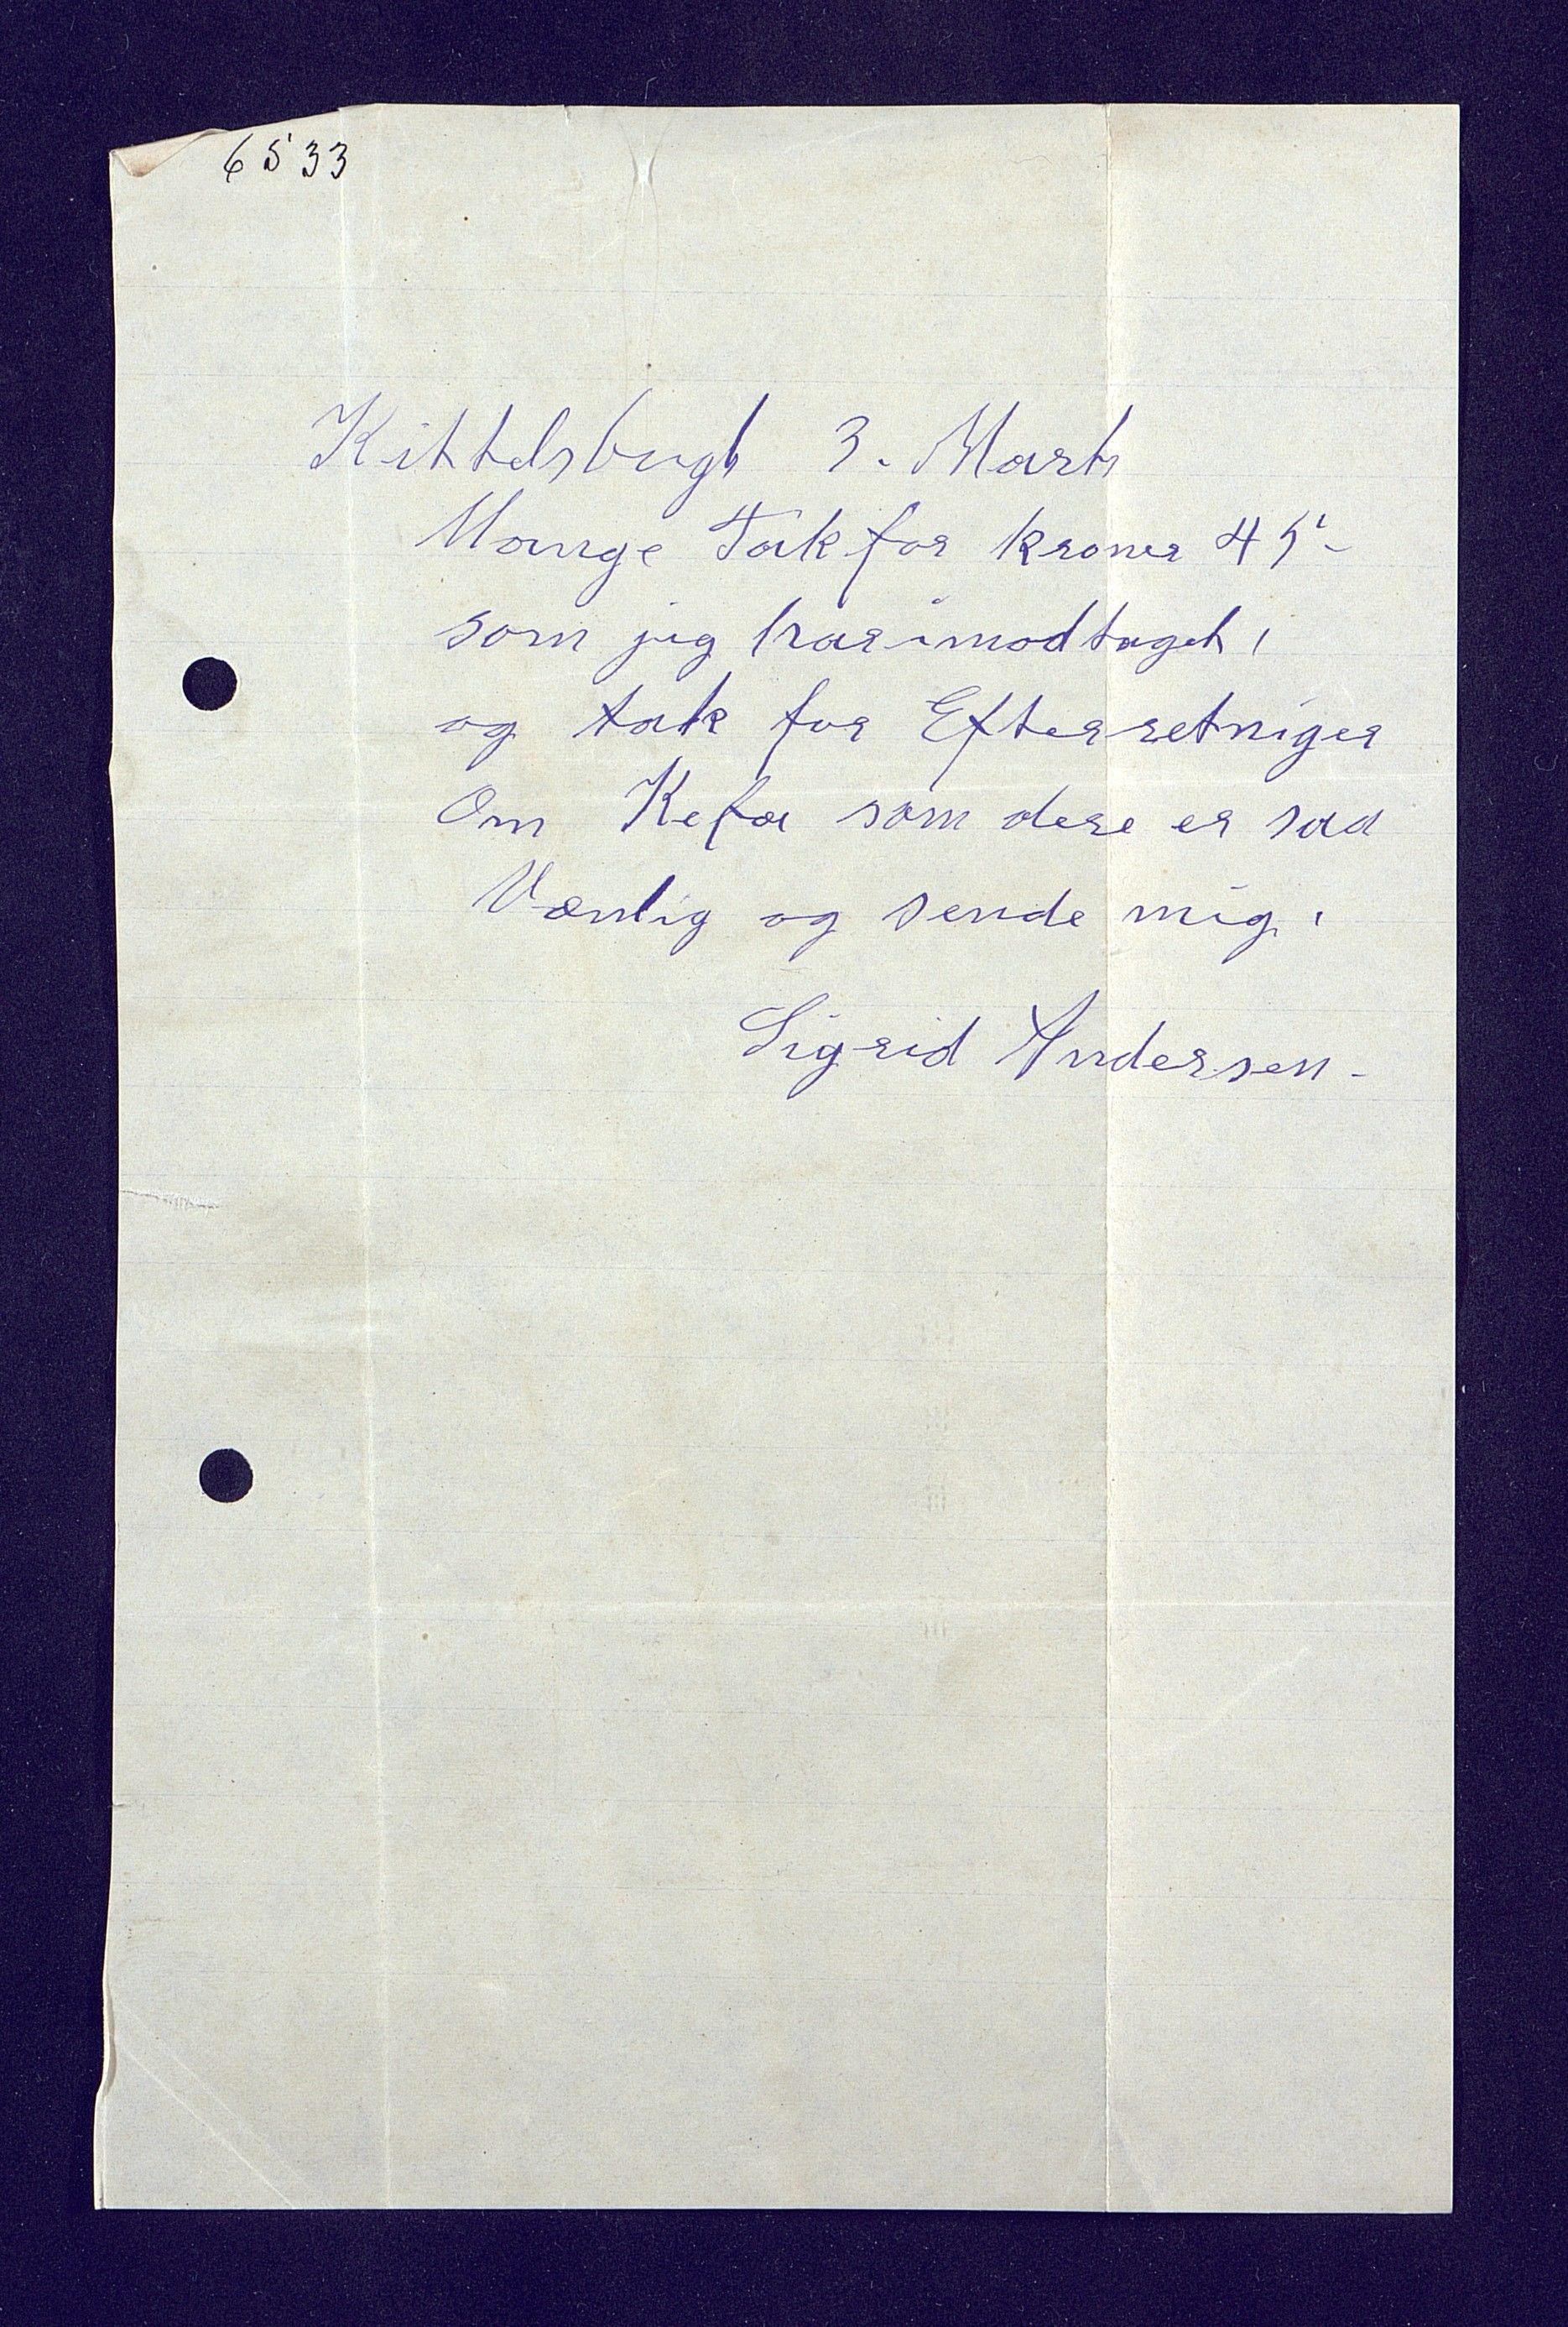 6533
Kittelsbugt 3. Marts
Mange Tak for kroner 45-
som jeg har imodtaget,
og tak for Efterretniger
Om Kefa som dere er saa
Vænlig og sende mig.
Sigrid Andersen-